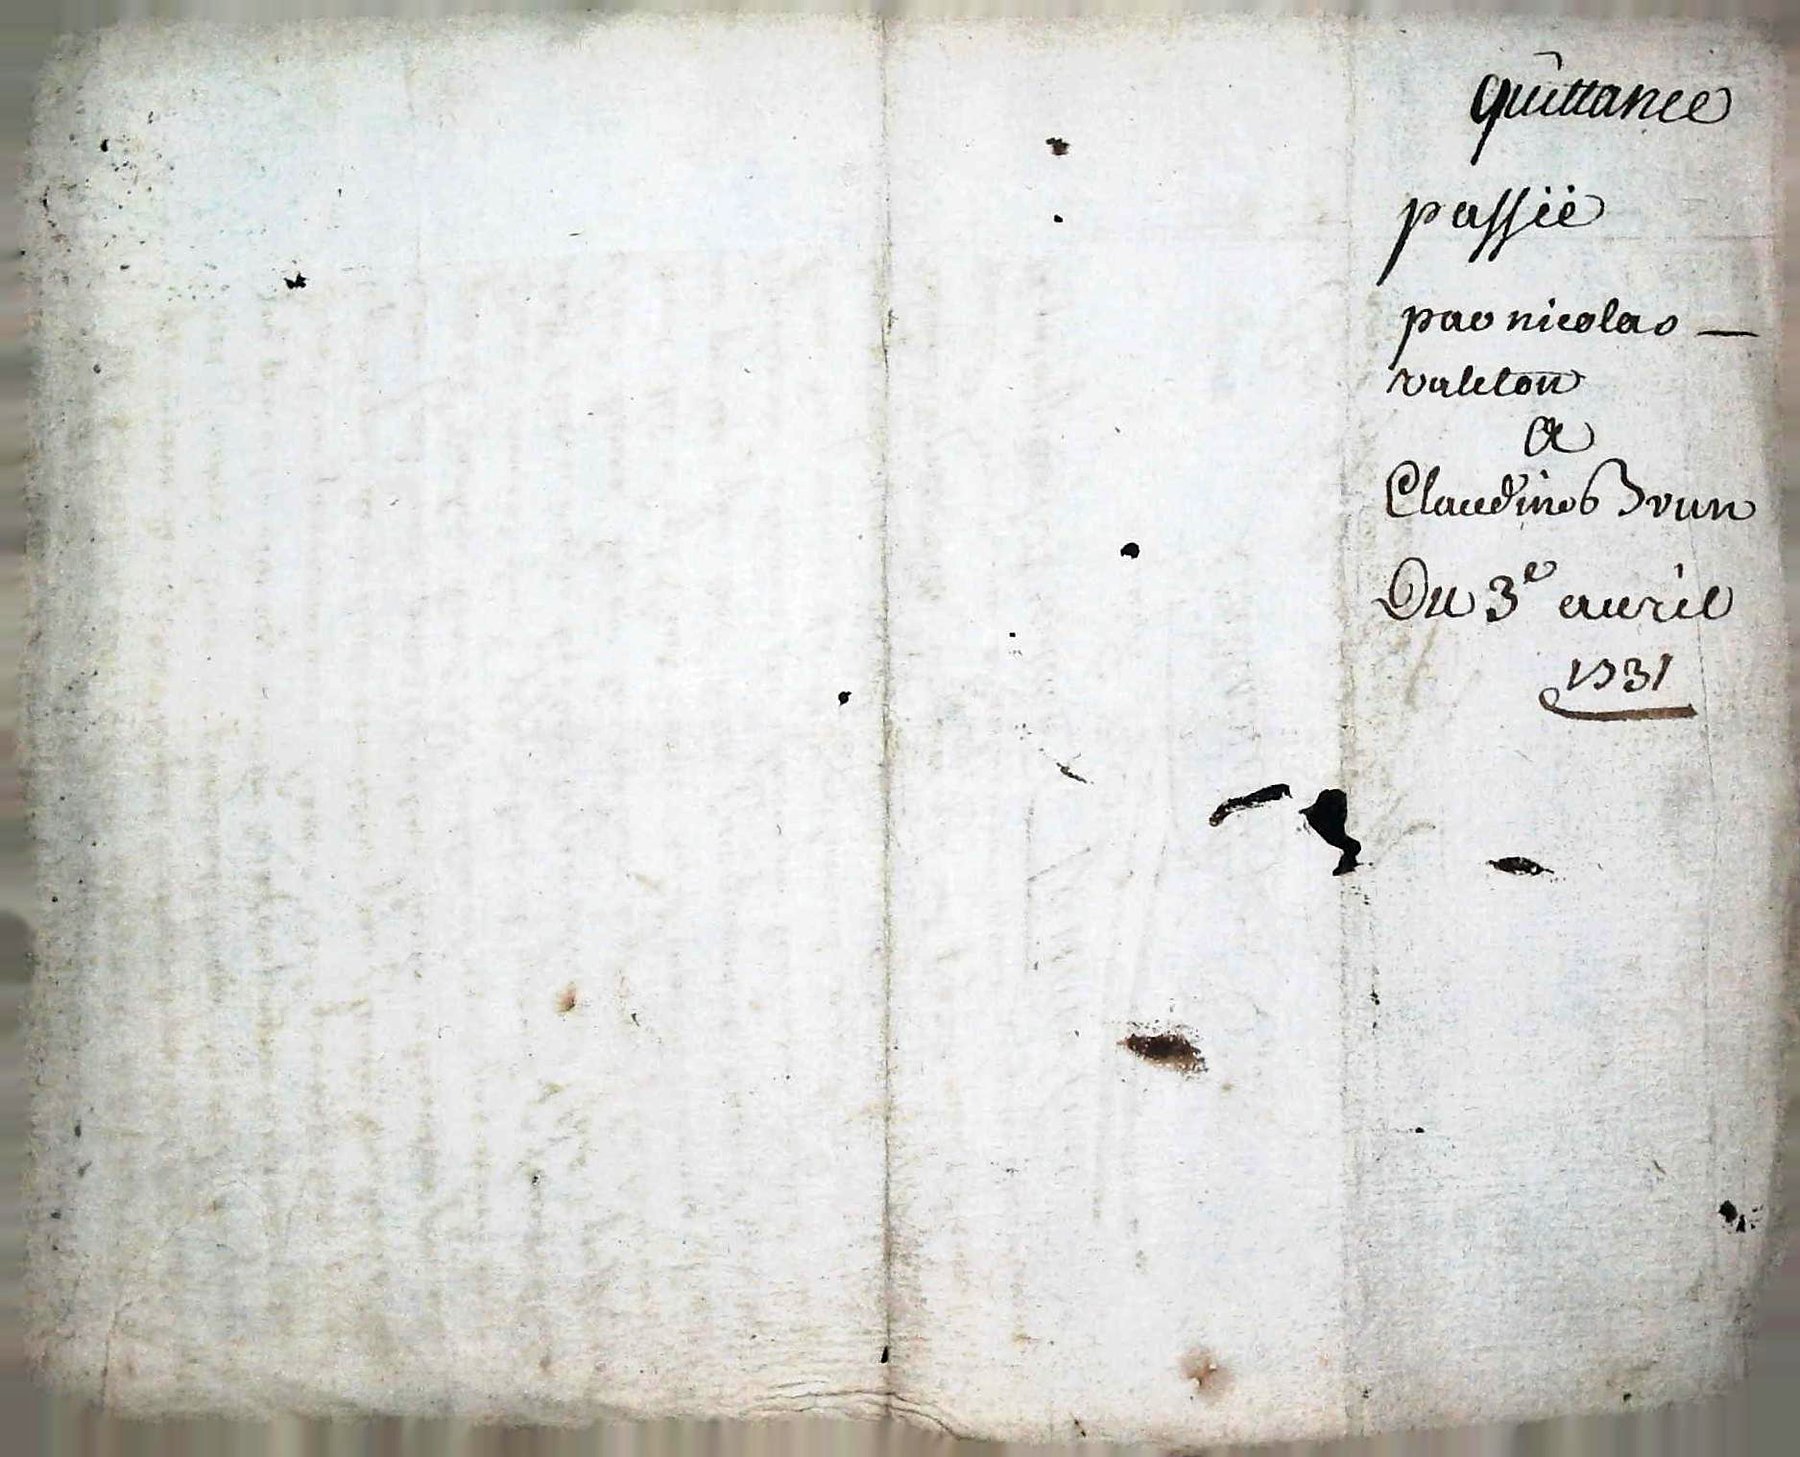 quittance
passée
par nicolas —
valeton
a
Claudine Brun
Du 3e auril
1731